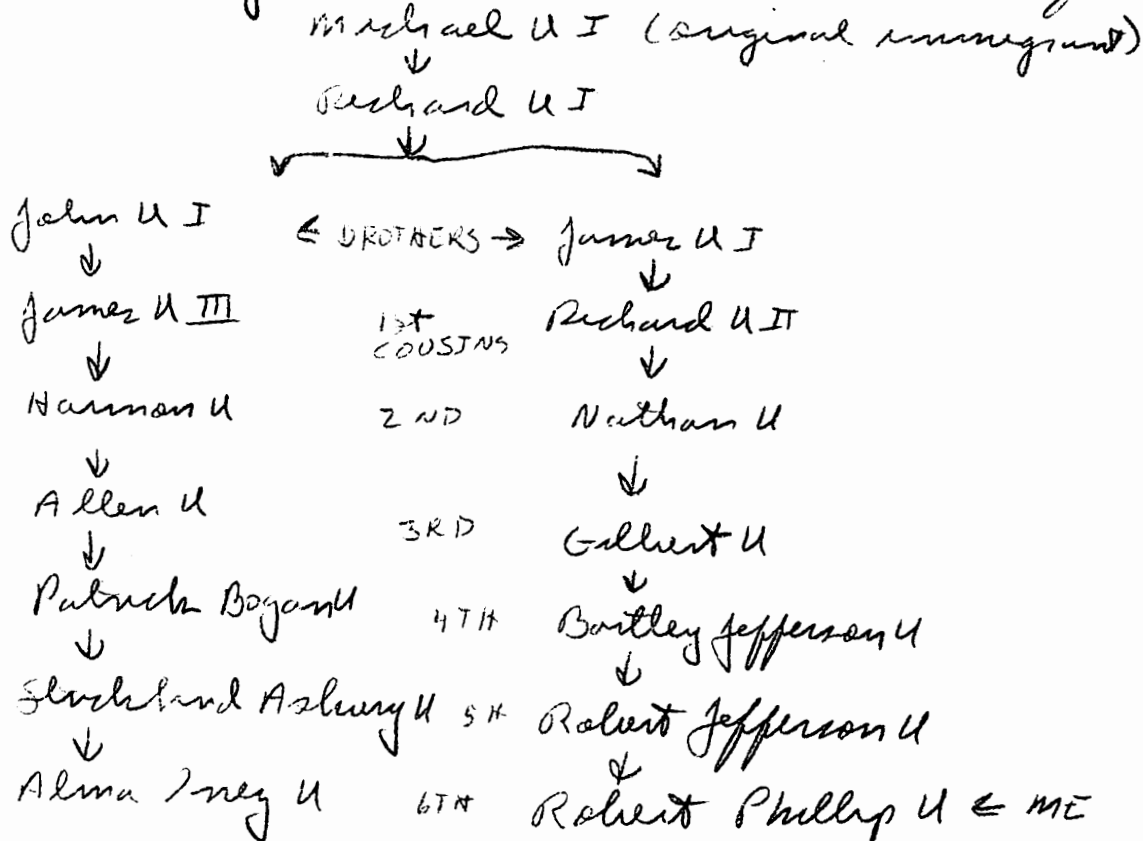 Michael U I (original immigrant)
Richard U I
John U I ← BROTHERS → James U I
James U III 1st COUSINS Richard U II
Harmon U 2ND Nathan U
Allen U 3RD Gilbert U
Patrick Bogan U 4TH Bartley Jefferson U
Asbury U 5H Robert Jefferson U
Alma Inez U 6TH Robert Phillip U ← ME